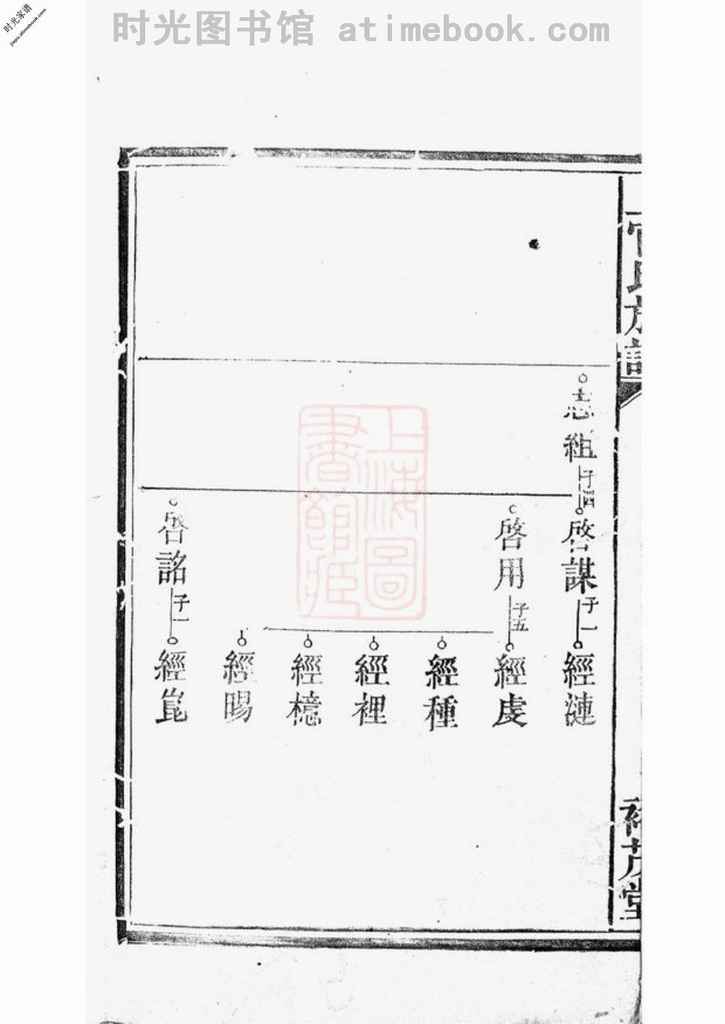 时光图书馆 atimebook.com
时光家谱
氏族譜
志組 子四
啓謀 子一
經漣
啓用 子五
經虔
經種
經裡
經檍
經暘
啓詺 子一
經崑
茂堂
上海圖書館藏